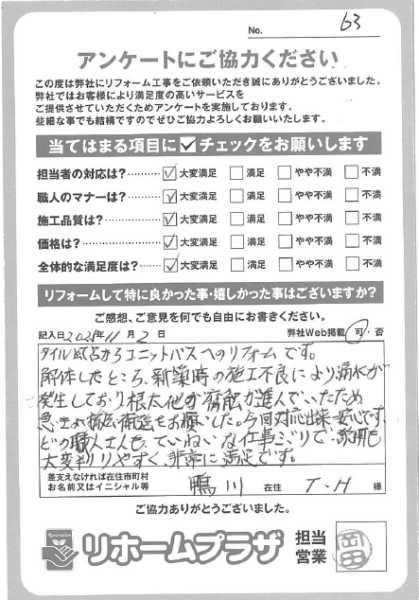 No. 63
アンケートにご協力ください
この度は弊社にリフォーム工事をご依頼いただき誠にありがとうございました。
弊社ではお客様により満足度の高いサービスを
ご提供させていただくためアンケートを実施しております。
些細な事でも結構ですのでぜひご協力よろしくお願いいたします。
当てはまる項目に✓チェックをお願いします
担当者の対応は?………✓大変満足 □満足 □やや不満 □不満
職人のマナーは?………✓大変満足 □満足 □やや不満 □不満
施工品質は?………✓大変満足 □満足 □やや不満 □不満
価格は?………✓大変満足 □満足 □やや不満 □不満
全体的な満足度は?……✓大変満足 □満足 □やや不満 □不満
リフォームして特に良かった事・嬉しかった事はございますか?
ご感想、ご意見を何でも自由にお書きください。
記入日 年11月2日 弊社Web掲載 可・否
タイル風呂からユニットバスへのリフォームです。
解体したところ、新築時の施工不良により漏水が
発生しており根太他が腐食が進んでいたため
急きょ 補強をお願いした。今回対応出来、安心です
どの職人さんも、ていねいな仕事ぶりで、説明も
大変判りやすく、非常に満足です。
差支えなければ在住市町村
お名前又はイニシャル等 鴨川 在住 T.H 様
ご協力ありがとうございました。
リホームプラザ
担当
営業
岡田